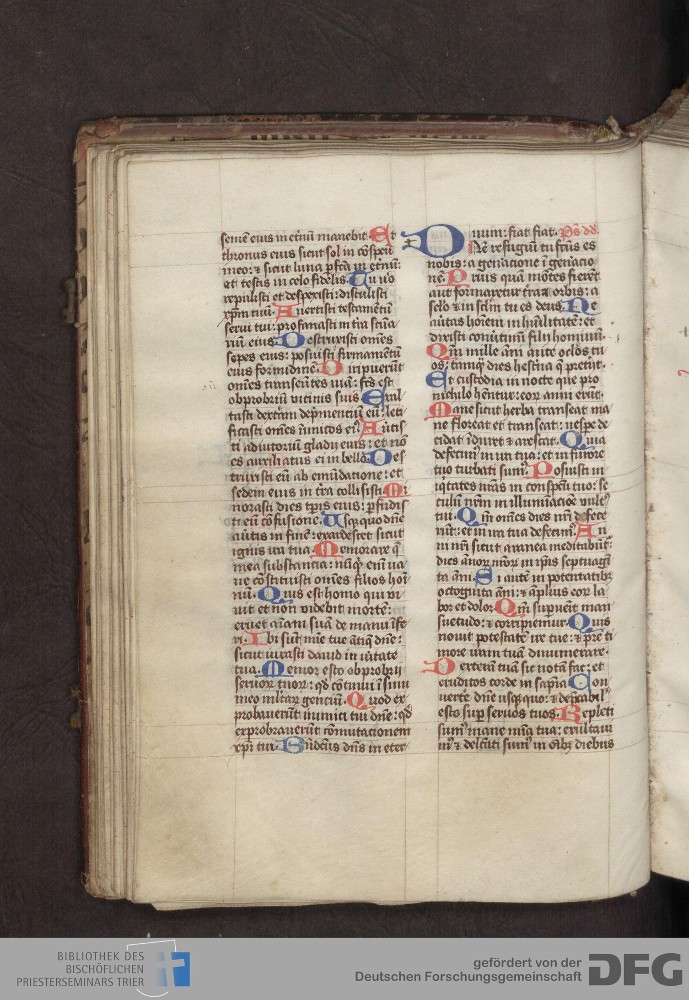 semē eius in etnū manebit Et
thronus eius sicut sol in cōspeū
meo: ⁊ sicut luna ꝑfcā in etnū:
et testis in celo fidelis. Tu vo
repulisti et despexisti: distulisti
xp̄m tuū. Auertisti testamētū
serui tui: prophanasti in tra
riū eius. Destruxisti oməs
sepes eius: posuisti firmamētū
eius formidinē. Diripuerūt
omēs transeūtes viā: fc̄s est
obprobriū vicinis suis Exal
tasti dextrām depͥmentiū eū: leti
ficasti omēs inimicos eiꝰ. Auertis
ti adiutoriū gladii eius: et nō
es auxiliatus ei in bello. Des
truxisti eū ab emūdatione: et
sedem eius in tr̄a collisisti. Mi
norasti dies tp̄is eius: ꝑfudis
ti eū cōfusione. Usqꝫquo dn̄e
auertis in finē: exardescet sicut
ignis ira tua Memorare q̄
mea substancia: nūqͥd eni va
ne cōstituisti omēs filios hoī
nū. Quis est homo qui vi
uit et non videbit mortē:
eruet aīam suā de manu īfe
ri. Ubi sūt mīe tue ātiq̄ dn̄e:
sicut iurasti dauid in vitate
tua. Memor esto obprobrii
seruoꝝ tuoꝝ: qd̄ cōtinui ī sinu
meo mltaꝝ genciū. Quod ex
probauerūt inimici tui dn̄e: qd̄
exprobrauerūt cōmutacionem
xp̄i tui. Bn̄dcūs dn̄s in eter
num: fiat fiat. Pͣs dd.
Dn̄e refugiū tu fc̄us es
nobis: a gen̄acione ī gen̄acio
nē. Prius quā mōtes fierēt
aut formaretur tr̄a ⁊ orbis: a
sclō ⁊ in sclm̄ tu es deus. Ne
auertas hoīem in hūilitatē: et
dixisti conūtimī filii hominū.
Qm̄ mille āni ante oclōs tu
os: tanqͣ dies hesterna q̄ pretiit.
Et custodia in nocte que pro
nichilo hēntur: eoꝝ anni erūt.
Mane sicut herba transeat ma
ne floreat et transeat: uespe de
cidat īduret ⁊ arescat. Quia
defecimꝰ in ira tua: et in furore
tuo turbati sumꝰ. Posuisti in
iqͥtates nr̄as in conspcū tuo: se
culū nr̄m in illuminacōe vultꝰ
tui. Qm̄ omēs dies nr̄i defece
rūt: et in ira tua defecimꝰ. An
ni nr̄i sicut aranea meditabūt᷑:
dies ānoꝝ nr̄oꝝ in ip̄is septuagī
ta āni. Si autē in potentatibꝫ
octoginta āni: ⁊ āplius eoꝝ la
bor et dolor. Qm̄ supuēit man
suetudo: ⁊ corripiemur. Quis
nouit potestatē ire tue: ⁊ pre ti
more iram tuam dinumerare.
Dexterā tuā sic notā fac: et
eruditos corde in sapīa. Con
uerte dn̄e usqꝫquo: ⁊ depcabil'
esto sup seruos tuos. Repleti
sumꝰ mane mīa tua: exultaui
mꝰ ⁊ delcāti sumꝰ in oībꝫ diebus
BIBLIOTHEK DES
BISCHÖFLICHEN
PRIESTERSEMINARS TRIER
gefördert von der
Deutschen Forschungsgemeinschaft
DFG